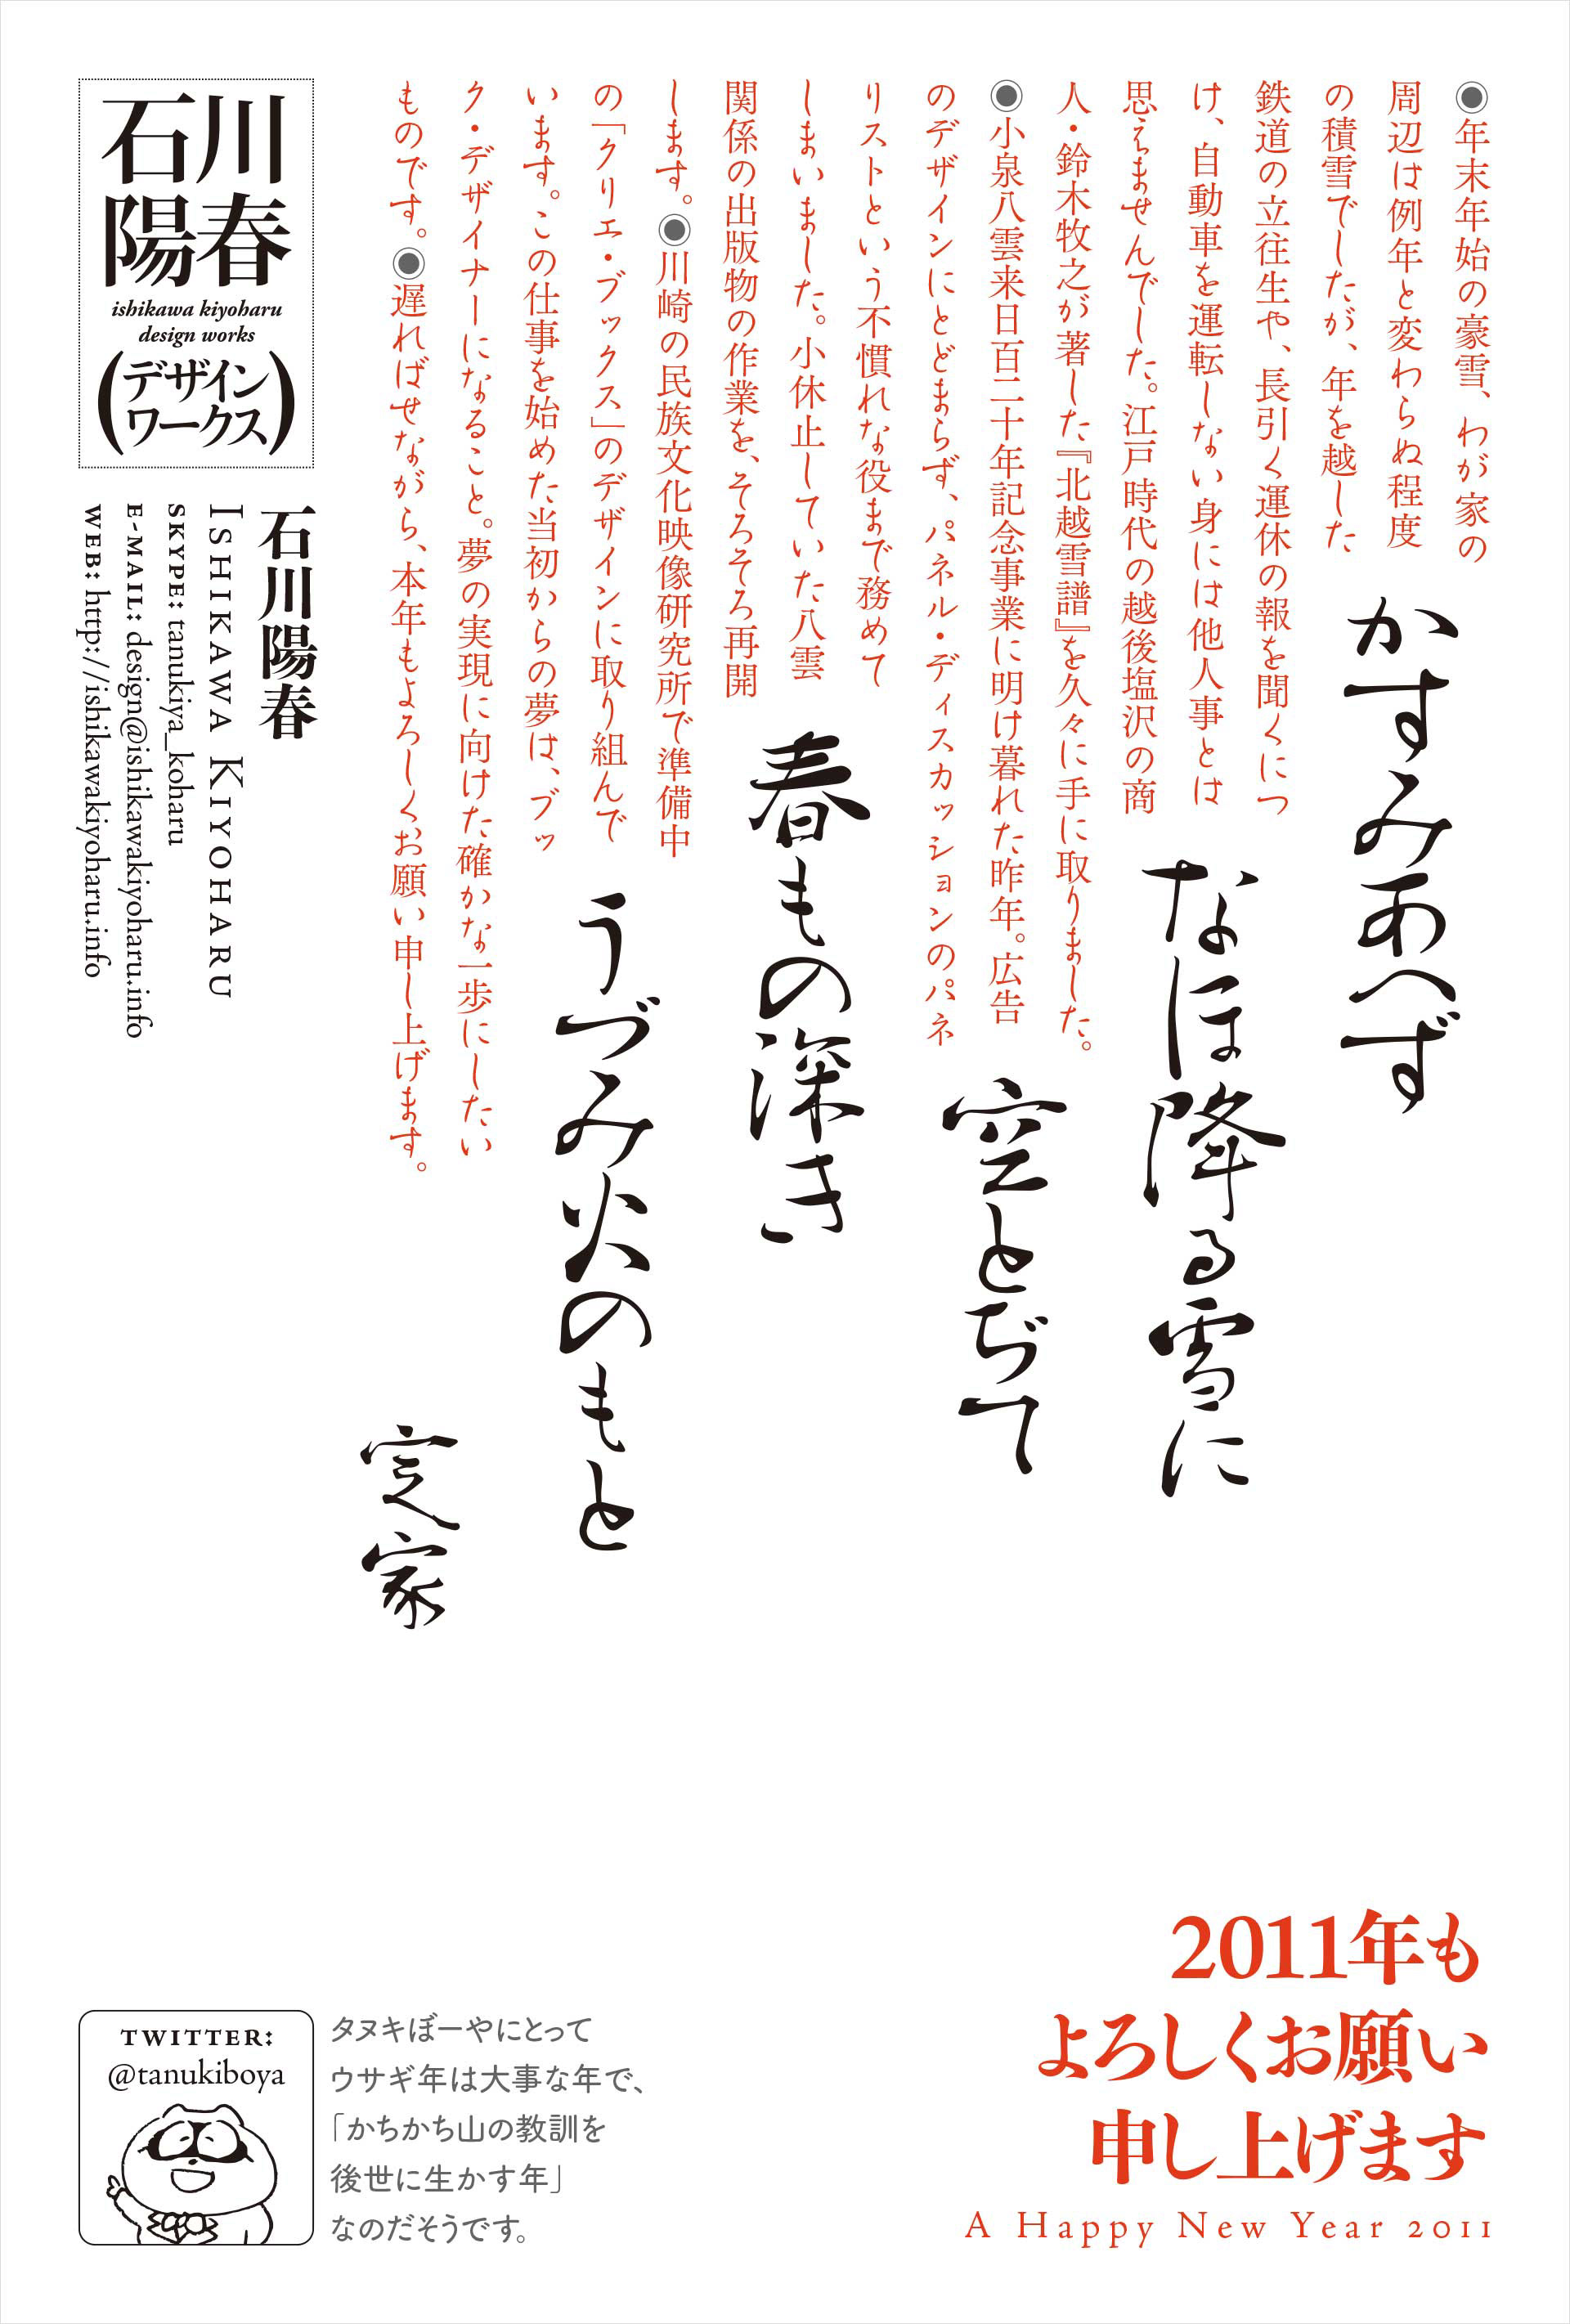 ◉年末年始の豪雪、わが家の
周辺は例年と変わらぬ程度
の積雪でしたが、年を越した
鉄道の立往生や、長引く運休の報を聞くにつ
け、自動車を運転しない身には他人事とは
思えませんでした。江戸時代の越後塩沢の商
人・鈴木牧之が著した『北越雪譜』を久々に手に取りました。
◉小泉八雲来日百二十年記念事業に明け暮れた昨年。広告
のデザインにとどまらず、パネル・ディスカッションのパネ
リストという不慣れな役まで務めて
しまいました。小休止していた八雲
関係の出版物の作業を、そろそろ再開
します。◉川崎の民族文化映像研究所で準備中
の「クリエ・ブックス」のデザインに取り組んで
います。この仕事を始めた当初からの夢は、ブッ
ク・デザイナーになること。夢の実現に向けた確かな一歩にしたい
ものです。◉遅ればせながら、本年もよろしくお願い申し上げます。
かすみあへず
なほ降る雪に
空とぢて
春もの深き
うづみ火のもと
定家
石川
陽春
ishikawa kiyoharu
design works
(デザイン
ワークス)
石川陽春
ISHIKAWA KIYOHARU
SKYPE: tanukiya_koharu
E-MAIL: design@ishikawakiyoharu.info
WEB: http://ishikawakiyoharu.info
2011年も
よろしくお願い
申し上げます
A Happy New Year 2011
TWITTER:
@tanukiboya
タヌキぼーやにとって
ウサギ年は大事な年で、
「かちかち山の教訓を
後世に生かす年」
なのだそうです。